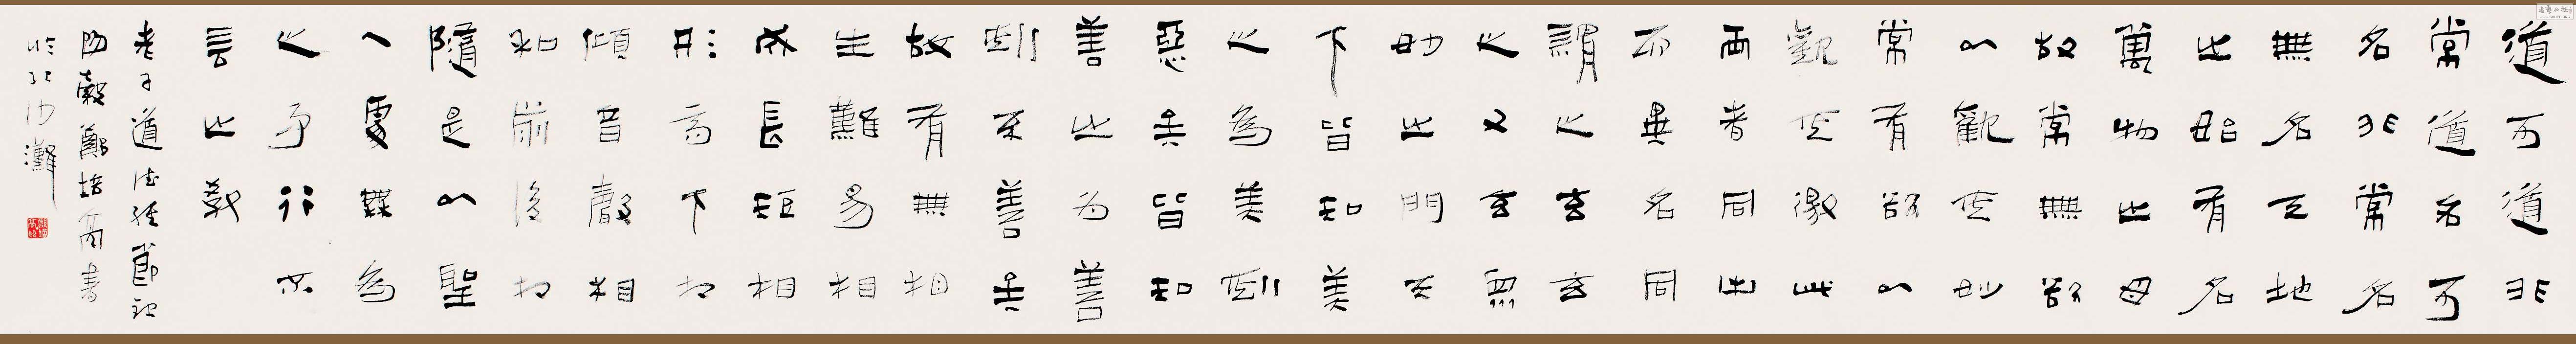 道可道非
常道名可
名非常名
無名天地
之始有名
萬物之母
故常無欲
以觀其妙
常有欲以
觀其徼此
兩者同出
而異名同
謂之玄玄
之又玄眾
妙之門天
下皆知美
之為美斯
惡矣皆知
善之为善
斯不善矣
故有無相
生難易相
成長短相
形高下相
傾音聲相
和前後相
隨是以聖
人處無為
之事行不
言之教
老子道德經節
陽穀鄭培亮書
於北沙灘